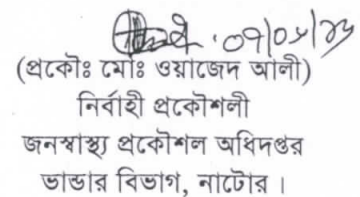 ০৭/০৮/২৩
(প্রকৌঃ মোঃ ওয়াজেদ আলী)
নির্বাহী প্রকৌশলী
জনস্বাস্থ্য প্রকৌশল অধিদপ্তর
ভান্ডার বিভাগ, নাটোর ।